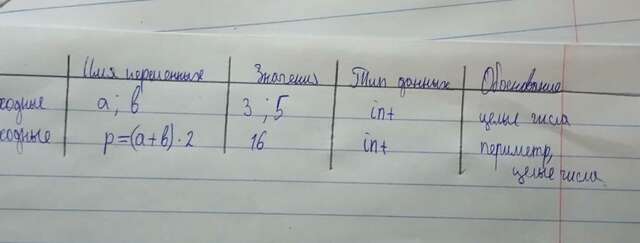 Имя переменных Значения Тип данных Обоснование
ходные a; b 3; 5 int целые числа
ходные p=(a+b)·2 16 int периметр,
целые числа